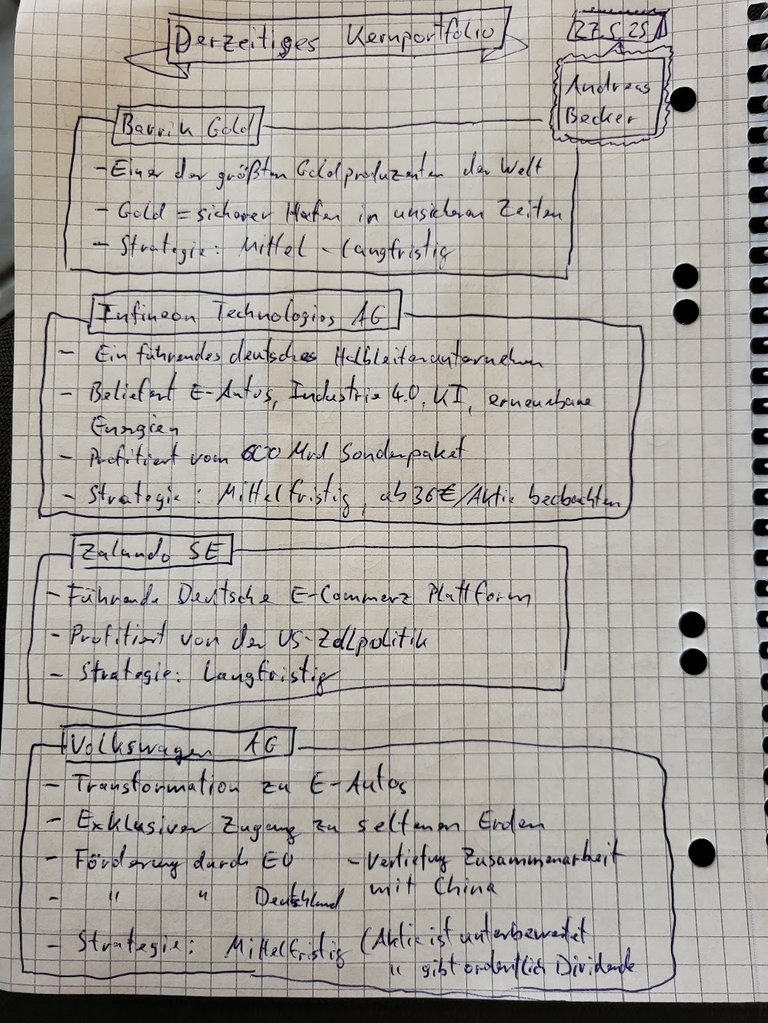 Derzeitiges Kernportfolio
27.5.25
Andreas
Becker
Barrik Gold
- Einer der größten Goldproduzenten der Welt
- Gold = sicherer Hafen in unsicheren Zeiten
- Strategie: Mittel - Langfristig
Infineon Technologies AG
- Ein führendes deutsches Halbleiterunternehmen
- Beliefert E-Autos, Industrie 4.0, KI, erneuerbare
Energien
- Profitiert vom 600 Mrd Sonderpaket
- Strategie: Mittelfristig, ab 36€/Aktie beobachten
Zalando SE
- Führende Deutsche E-Commerz Plattform
- Profitiert von der US-Zollpolitik
- Strategie: Langfristig
Volkswagen AG
- Transformation zu E-Autos
- Exklusiver Zugang zu seltenen Erden
- Förderung durch EU - Vertiefung Zusammenarbeit
- " " Deutschland mit China
- Strategie: Mittelfristig (Aktie ist unterbewertet
" gibt ordentlich Dividende